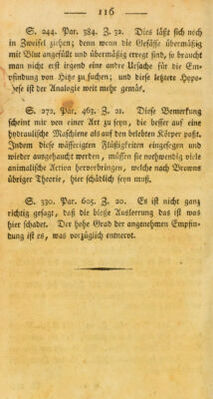 116
S. 244. Par. 384. Z. 32. Dies läßt sich noch
in Zweifel ziehen; denn wenn die Gefäße übermäßig
mit Blut angefüllt und übermäßig erregt sind, so braucht
man nicht erst eine andre Ursache für die Em-
pfindung von Hitze zu suchen; und diese letztere Hypo-
these ist der Analogie weit mehr gemäs.
S. 272. Par. 463. Z. 21. Diese Bemerkung
scheint mir von einer Art zu seyn, die besser auf eine
hydraulische Maschiene als auf den belebten Körper paßt.
Indem diese wässerigten Flüßigkeiten eingesogen und
wieder ausgehaucht werden, müssen sie nothwendig viele
animalische Action hervorbringen, welche nach Browns
übriger Theorie, hier schädlich seyn muß.
S. 330. Par. 605. Z. 20. Es ist nicht ganz
richtig gesagt, daß die bloße Ausleerung das ist was
hier schadet. Der hohe Grad der angenehmen Empfin-
dung ist es, was vorzüglich entnervt.